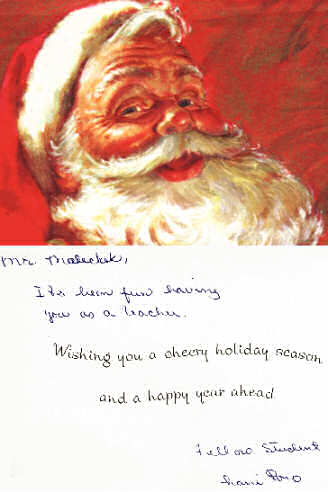 Mr.
Its been fun having
you as a teacher.
Wishing you a cheery holiday season
and a happy year ahead
Fellow Student